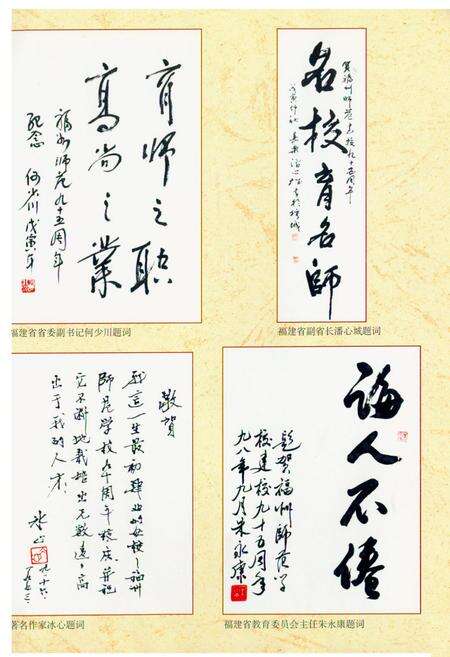 育师之职
高尚之業
福州师范九十五周年
纪念 何少川 戊寅年
福建省省委副书记何少川题词
贺福州师范学校九十五周年
名校育名師
潘心城
福建省副省长潘心城题词
敬贺
我這一生最初肄业的母校福州
師范学校九十周年校庆并祝
它不断地栽培出无数遠遠高
出于我的人才
冰心
著名作家冰心题词
诲人不倦
题贺福州師范学
校建校九十五周年
九八年九月朱永康
福建省教育委员会主任朱永康题词